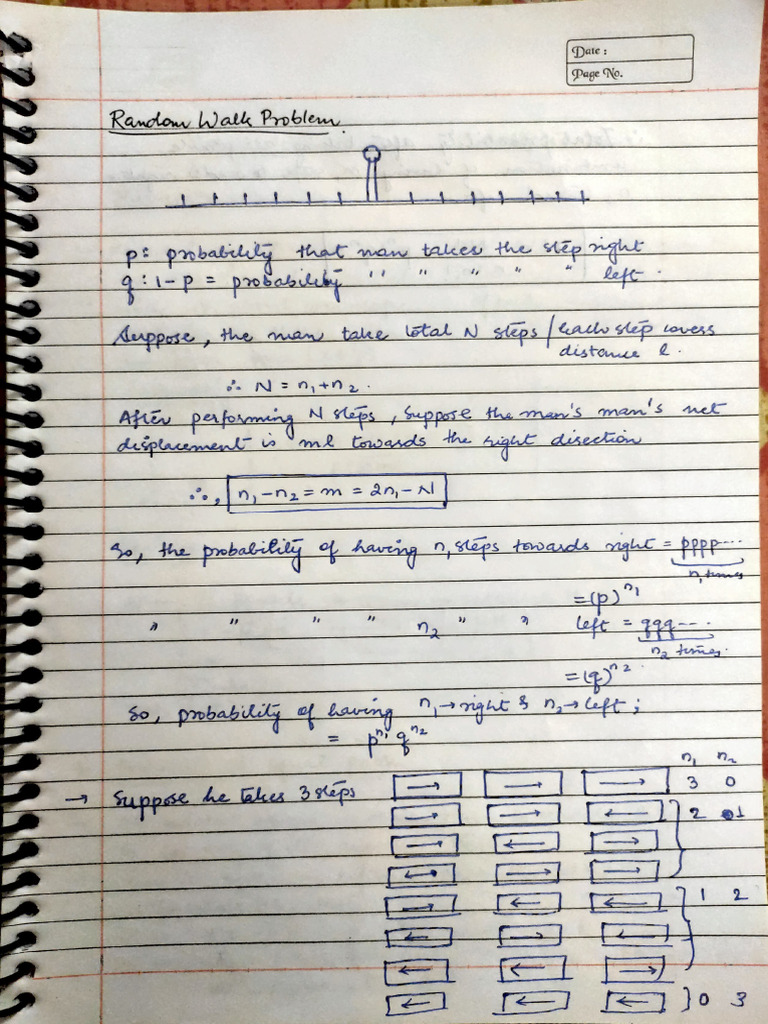 Date :
Page No.
Random Walk Problem.
p: probability that man takes the step right
q : 1-p = probability " " " " " left.
Suppose, the man take total N steps / each step covers
distance l.
∴ N = n₁+n₂.
After performing N steps, suppose the man's man's net
displacement is ml towards the right direction
∴, n₁-n₂ = m = 2n₁-N
So, the probability of having n₁ steps towards right = pppp....
n₁ times
= (p)^n₁
" " " " n₂ " " left = qqq....
n₂ times.
= (q)^n₂.
So, probability of having n₁→right & n₂→left;
= p^n₁ q^n₂
n₁ n₂
→ Suppose he takes 3 steps → → → 3 0
→ → ← } 2 1
→ ← →
← → →
→ ← ← } 1 2
← → ←
← ← →
← ← ← } 0 3